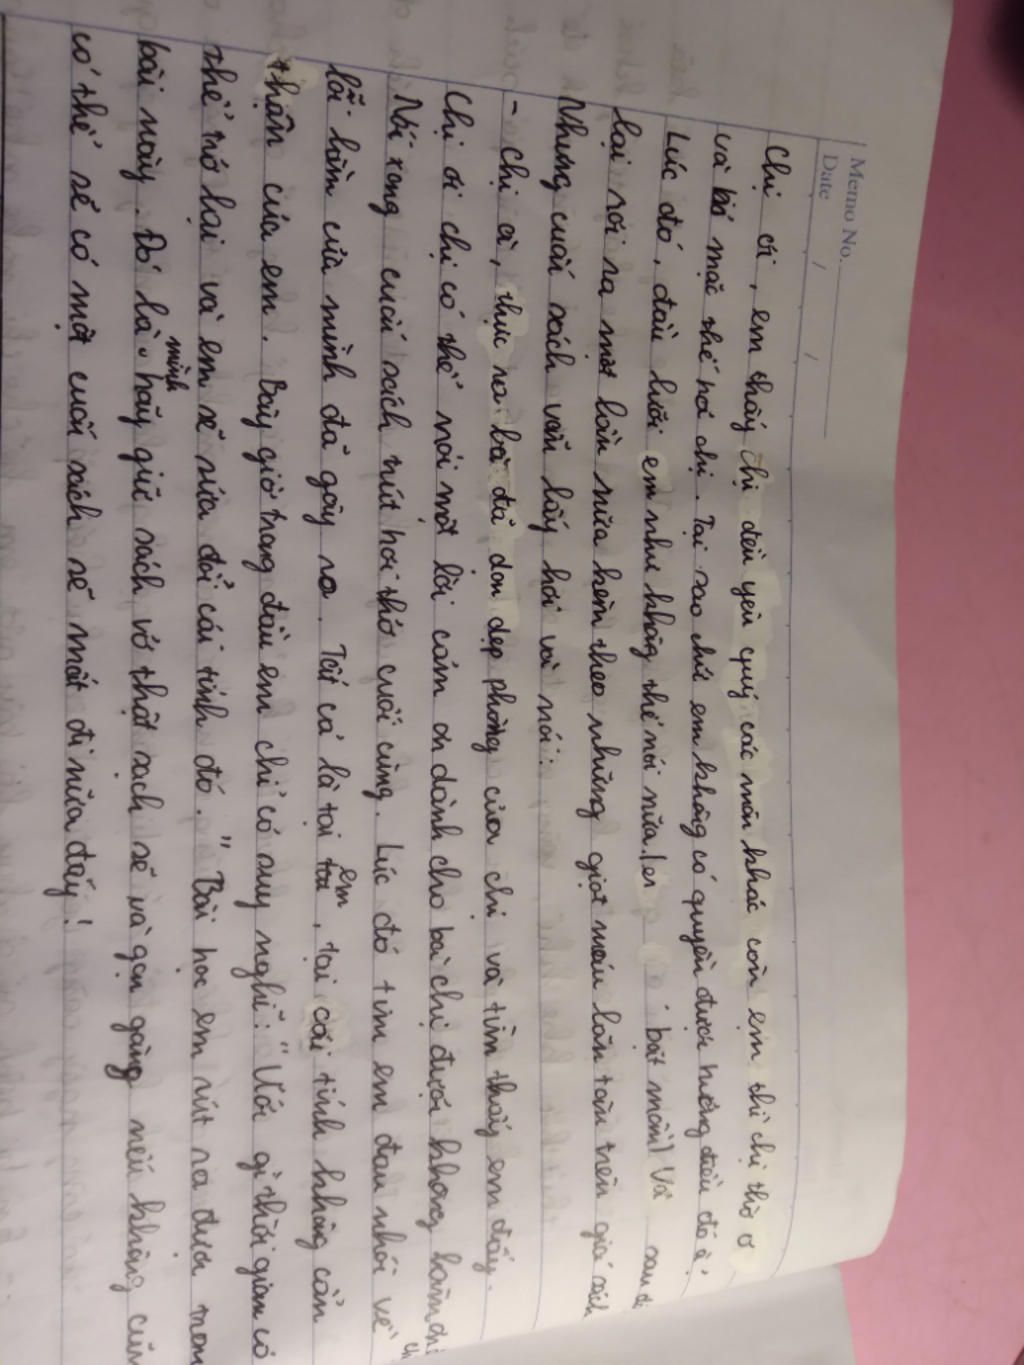 Memo No.
Date / /
Chị ơi, em thấy chị đều yêu quý các món khác còn em thì chị thờ ơ
và bỏ mặc thế hả chị. Tại sao chứ em không có quyền được hưởng điều đó à?
Lúc đó, đầu lưỡi em như không thể nói nữa bắt mồm) Và sau đó
lại rơi ra một lần nữa kèm theo những giọt máu lăn tràn trên giá sách
Nhưng cuốn sách vẫn lấy hơi và nói:
- Chị à, thực ra bà đã dọn dẹp phòng của chị và tìm thấy em đấy.
Chị ơi chị có thể nói một lời cảm ơn dành cho bà chị được không hả chị
Nói xong cuốn sách nút hơi thở cuối cùng. Lúc đó tim em đau nhói về
lỗi lầm của mình đã gây ra. Tất cả là tại em, tại cái tính không cẩn
thận của em. Bây giờ trong đầu em chỉ có suy nghĩ: "Ước gì thời gian có
thể trở lại và em sẽ sửa đổi cái tính đó." Bài học em rút ra được
bài này. Đó là: mình hãy giữ sách vở thật sạch sẽ và gọn gàng nếu không
có thể sẽ có một cuốn sách sẽ mất đi nữa đấy!